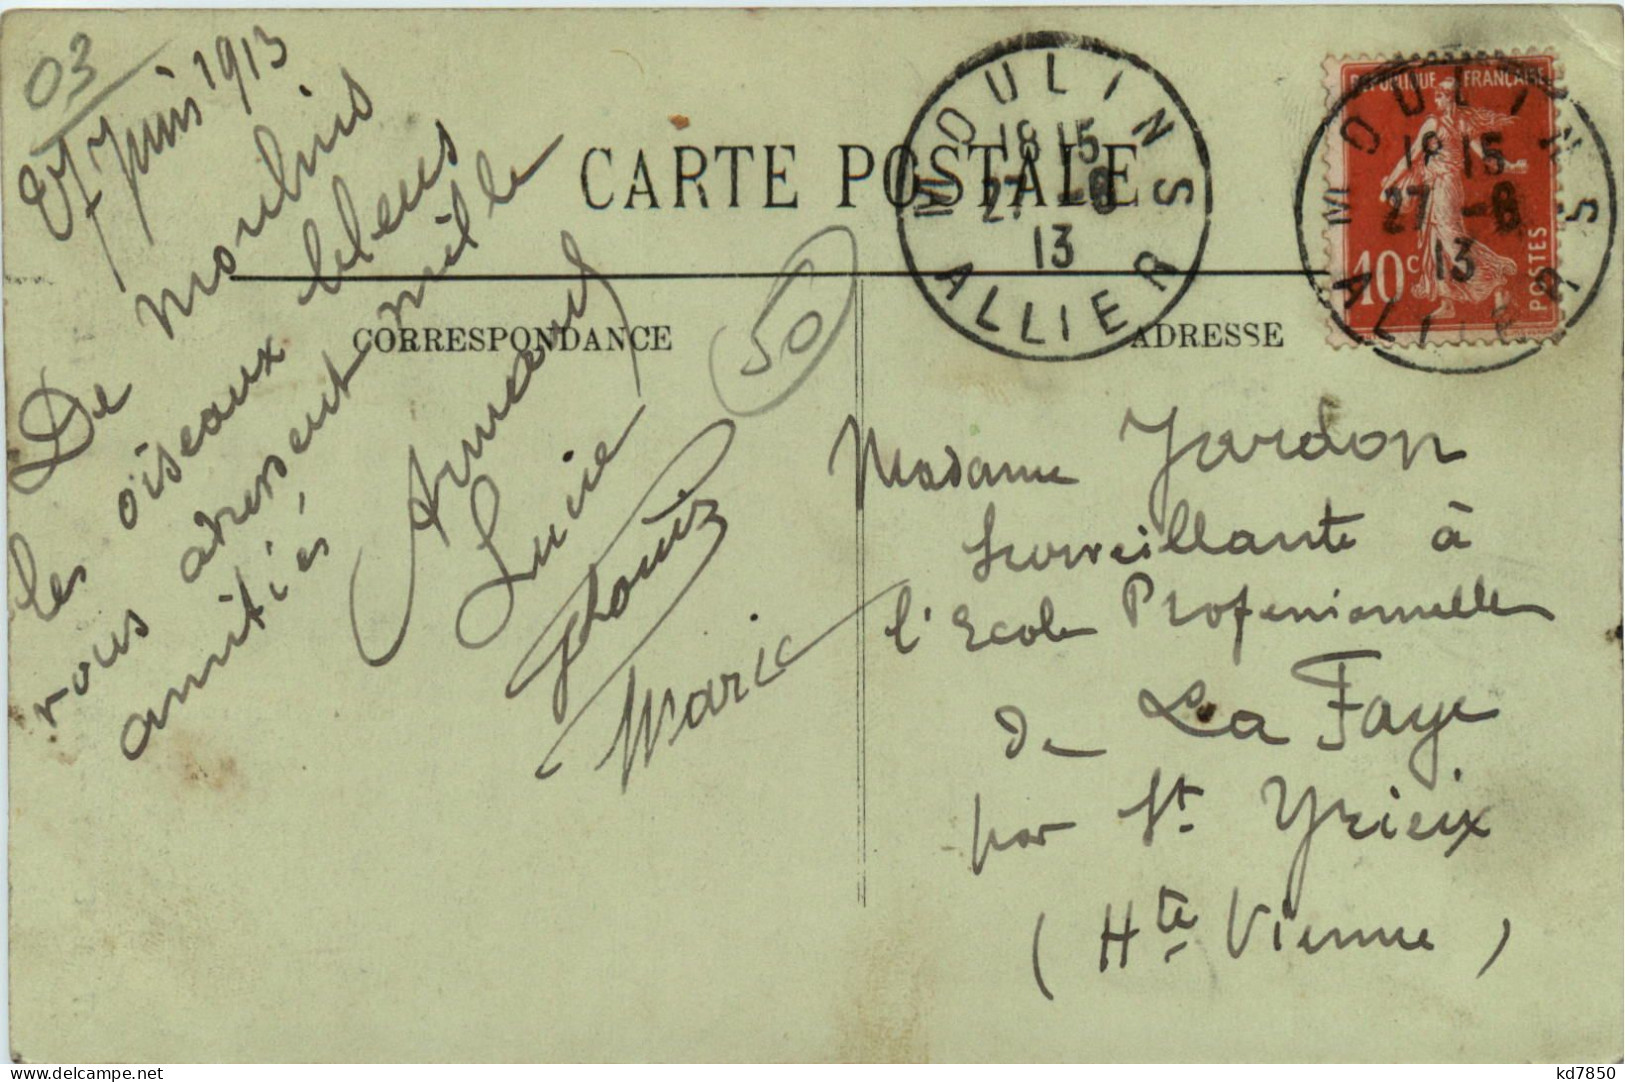 03
27 Juin 1913
De Moulins
les oiseaux bleus
vous adressent mille
amitiés
Armand
Lucie
Louis
Marie
50
CARTE POSTALE
CORRESPONDANCE
ADRESSE
MOULINS
18 15
27 -6
13
ALLIER
REPUBLIQUE FRANÇAISE
10c
POSTES
MOULINS
18 15
27 -6
13
ALLIER
Madame Jardon
Surveillante à
l'Ecole Professionnelle
de La Faye
par St Yrieix
(Hte Vienne)
delcampe.net
kd7850